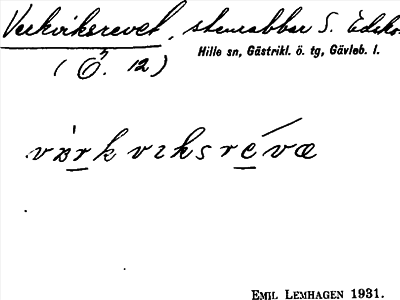 Verkviksrevet, stenrabbar S. Edskö
Hille sn, Gästrikl. ö. tg, Gävleb. l.
(Ö. 12)
värkviksrevæ
EMIL LEMHAGEN 1931.